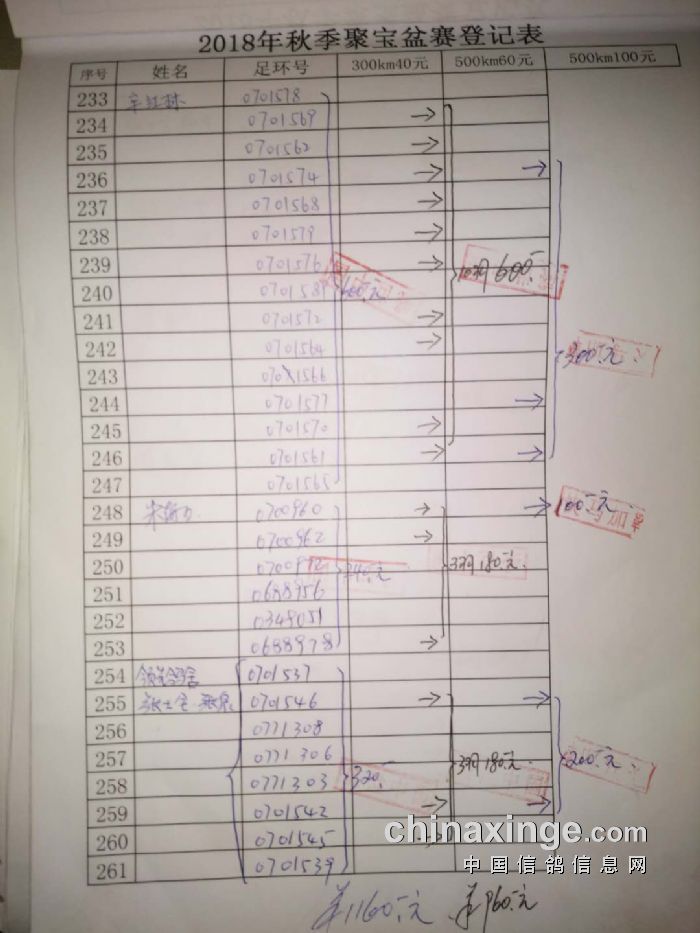 2018年秋季聚宝盆赛登记表
序号 姓名 足环号 300km40元 500km60元 500km100元
233 0701578
234 0701569 →
235 0701562 →
236 0701574 → →
237 0701568 →
238 0701579 →
239 0701576 →
240 070158 600元 10羽600
241 0701572 →
242 0701564 → 300元
243 0701566
244 0701577 →
245 0701570 →
246 0701561 → →
247 0701565
248 0700960 → → 100元
249 0700962 →
250 240元 3羽180元
251 0688956
252 0349051
253 0688978 →
254 0701537
255 0701546 → →
256 0771308
257 0771306 3羽180元 200元
258 0771303 320
259 0701542 → →
260 0701545 →
261 0701539
1160元 960元
chinaxinge.com
中国信鸽信息网